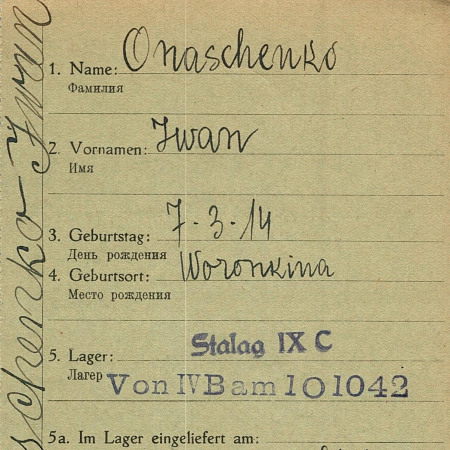 1. Name: Onaschenko
Фамилия
2. Vornamen: Iwan
Имя
3. Geburtstag: 7.3.14
День рождения
4. Geburtsort: Woronkina
Место рождения
5. Lager: Stalag IX C
Лагер Von IV B am 101042
5a. Im Lager eingeliefert am:
schenko Iwan